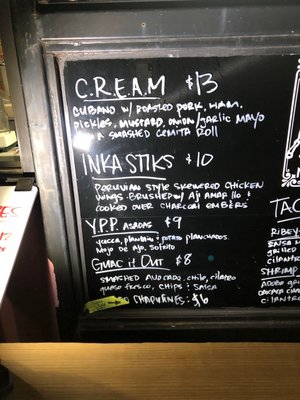 C.R.E.A.M $13
CUBANO W/ ROASTED PORK, HAM,
PICKLES, MUSTARD, ONION/GARLIC MAYO
A SMASHED CEMITA ROLL
INKA STIKS $10
PERUVIAN STYLE SKEWERED CHICKEN
WINGS. BRUSHED W/ AJI AMARILLO &
COOKED OVER CHARCOAL EMBERS
Y.P.P. ASADAS $9
YUCCA, PLANTAIN & POTATO PLANCHADOS.
MOJO DE AJO, SOFRITO
GUAC it OUT $8
SMASHED AVOCADO, CHILE, CILANTRO
QUESO FRESCO, CHIPS & SALSA
CHAPULINES: $6
TAC
RIBEY
SALSA
GRILLED
CILANTRO
SHRIMP
ADOBO
OAXACA
CILANTR